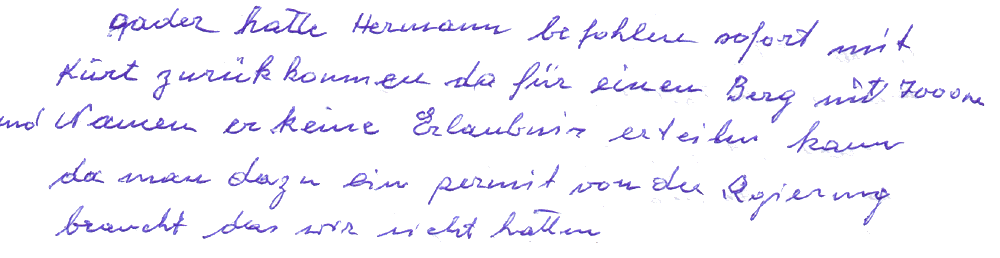 gader hatte Hermann befohlen sofort mit
Kurt zurük kommen da für einen Berg mit 7000m
und Namen er keine Erlaubnis erteiln kann
da man dazu ein permit von der Regierung
braucht das wir nicht hatten